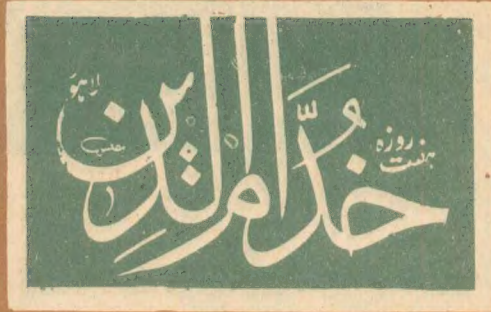 ہفت روزہ
خدّام الدِین
لاہور